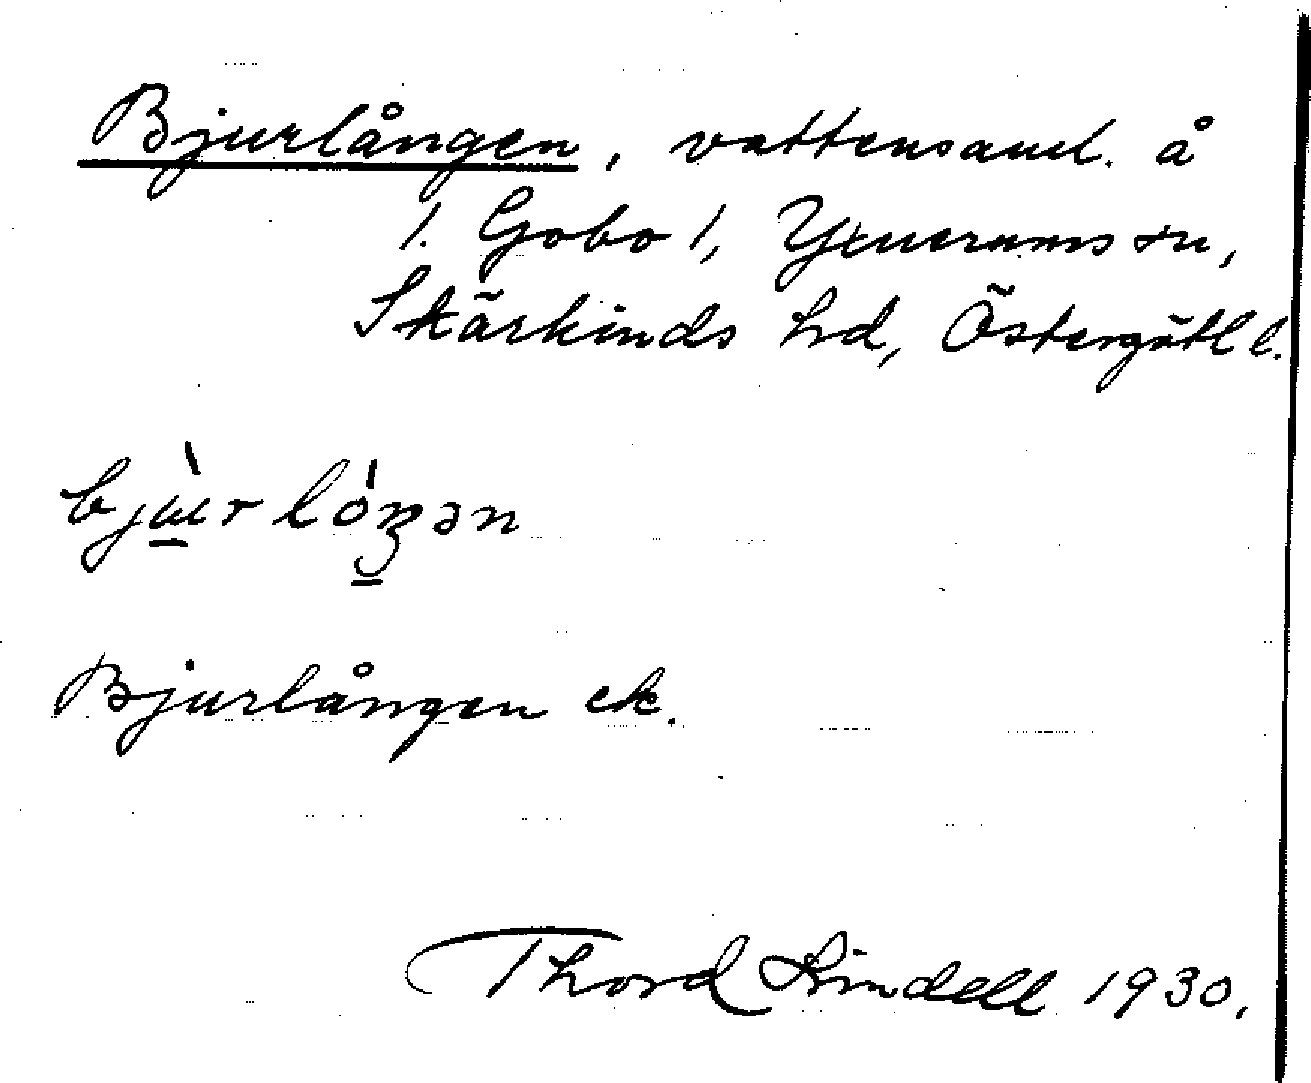 Bjurlången, vattensaml. å
1. Gobo 1, Yxnerums sn,
Skärkinds hd, Östergötl l.
bjùrlóŋən
Bjurlången ek.
Thord Lindell 1930.